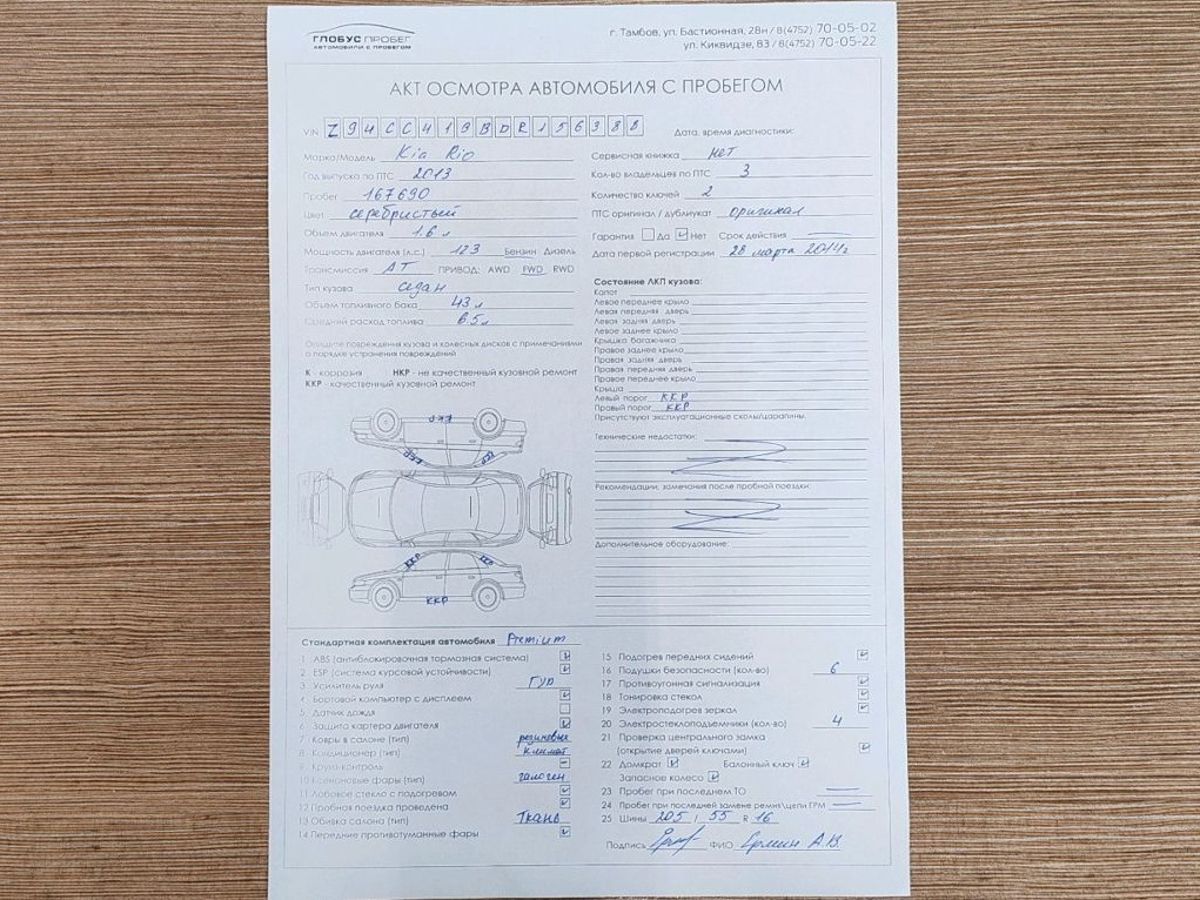 ГЛОБУС ПРОБЕГ
АВТОМОБИЛИ С ПРОБЕГОМ
г. Тамбов, ул. Бастионная, 28н / 8(4752) 70-05-02
ул. Киквидзе, 83 / 8(4752) 70-05-22
АКТ ОСМОТРА АВТОМОБИЛЯ С ПРОБЕГОМ
VIN Z94CC419BDR156388
Дата, время диагностики:
Марка/Модель Kia Rio
Год выпуска по ПТС 2013
Пробег 167690
Цвет серебристый
Объем двигателя 1.6 л
Мощность двигателя (л.с.) 123 Бензин Дизель
Трансмиссия АТ ПРИВОД: AWD FWD RWD
Тип кузова седан
Объем топливного бака 43 л
Средний расход топлива 6.5 л
Опишите повреждения кузова и колесных дисков с примечаниями
о порядке устранения повреждений
К - коррозия НКР - не качественный кузовной ремонт
ККР - качественный кузовной ремонт
ККР
ККР ККР
ККР ККР
ККР
Сервисная книжка нет
Кол-во владельцев по ПТС 3
Количество ключей 2
ПТС оригинал / дубликат оригинал
Гарантия Да Нет Срок действия
Дата первой регистрации 28 марта 2014г
Состояние ЛКП кузова:
Капот
Левое переднее крыло
Левая передняя дверь
Левая задняя дверь
Левое заднее крыло
Крышка багажника
Правое заднее крыло
Правая задняя дверь
Правая передняя дверь
Правое переднее крыло
Крыша
Левый порог ККР
Правый порог ККР
Присутствуют эксплуатационные сколы/царапины.
Технические недостатки:
Рекомендации, замечания после пробной поездки:
Дополнительное оборудование:
Стандартная комплектация автомобиля Premium
1 ABS (антиблокировочная тормозная система)
2 ESP (система курсовой устойчивости)
3 Усилитель руля ГУР
4 Бортовой компьютер с дисплеем
5 Датчик дождя
6 Защита картера двигателя
7 Ковры в салоне (тип) резиновые
8 Кондиционер (тип) климат
9 Круиз-контроль
10 Ксеноновые фары (тип) галоген
11 Лобовое стекло с подогревом
12 Пробная поездка проведена
13 Обивка салона (тип) Ткань
14 Передние противотуманные фары
15 Подогрев передних сидений
16 Подушки безопасности (кол-во) 6
17 Противоугонная сигнализация
18 Тонировка стекол
19 Электроподогрев зеркал
20 Электростеклоподъемники (кол-во) 4
21 Проверка центрального замка
(открытие дверей ключами)
22 Домкрат Балонный ключ
Запасное колесо
23 Пробег при последнем ТО
24 Пробег при последней замене ремня\цепи ГРМ
25 Шины 205 / 55 R 16
Подпись ФИО Ермин А.В.